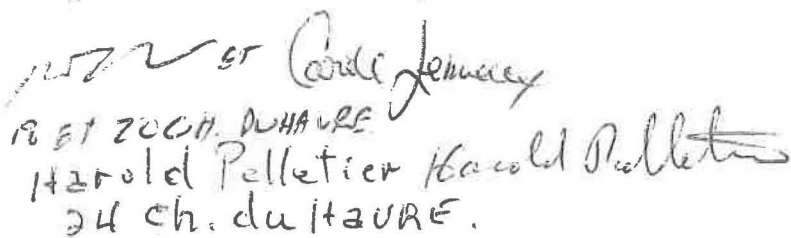 ET Carole
19 ET 20 CH. DU HAVRE
Harold Pelletier Harold Pelletier
24 ch. du HAVRE.